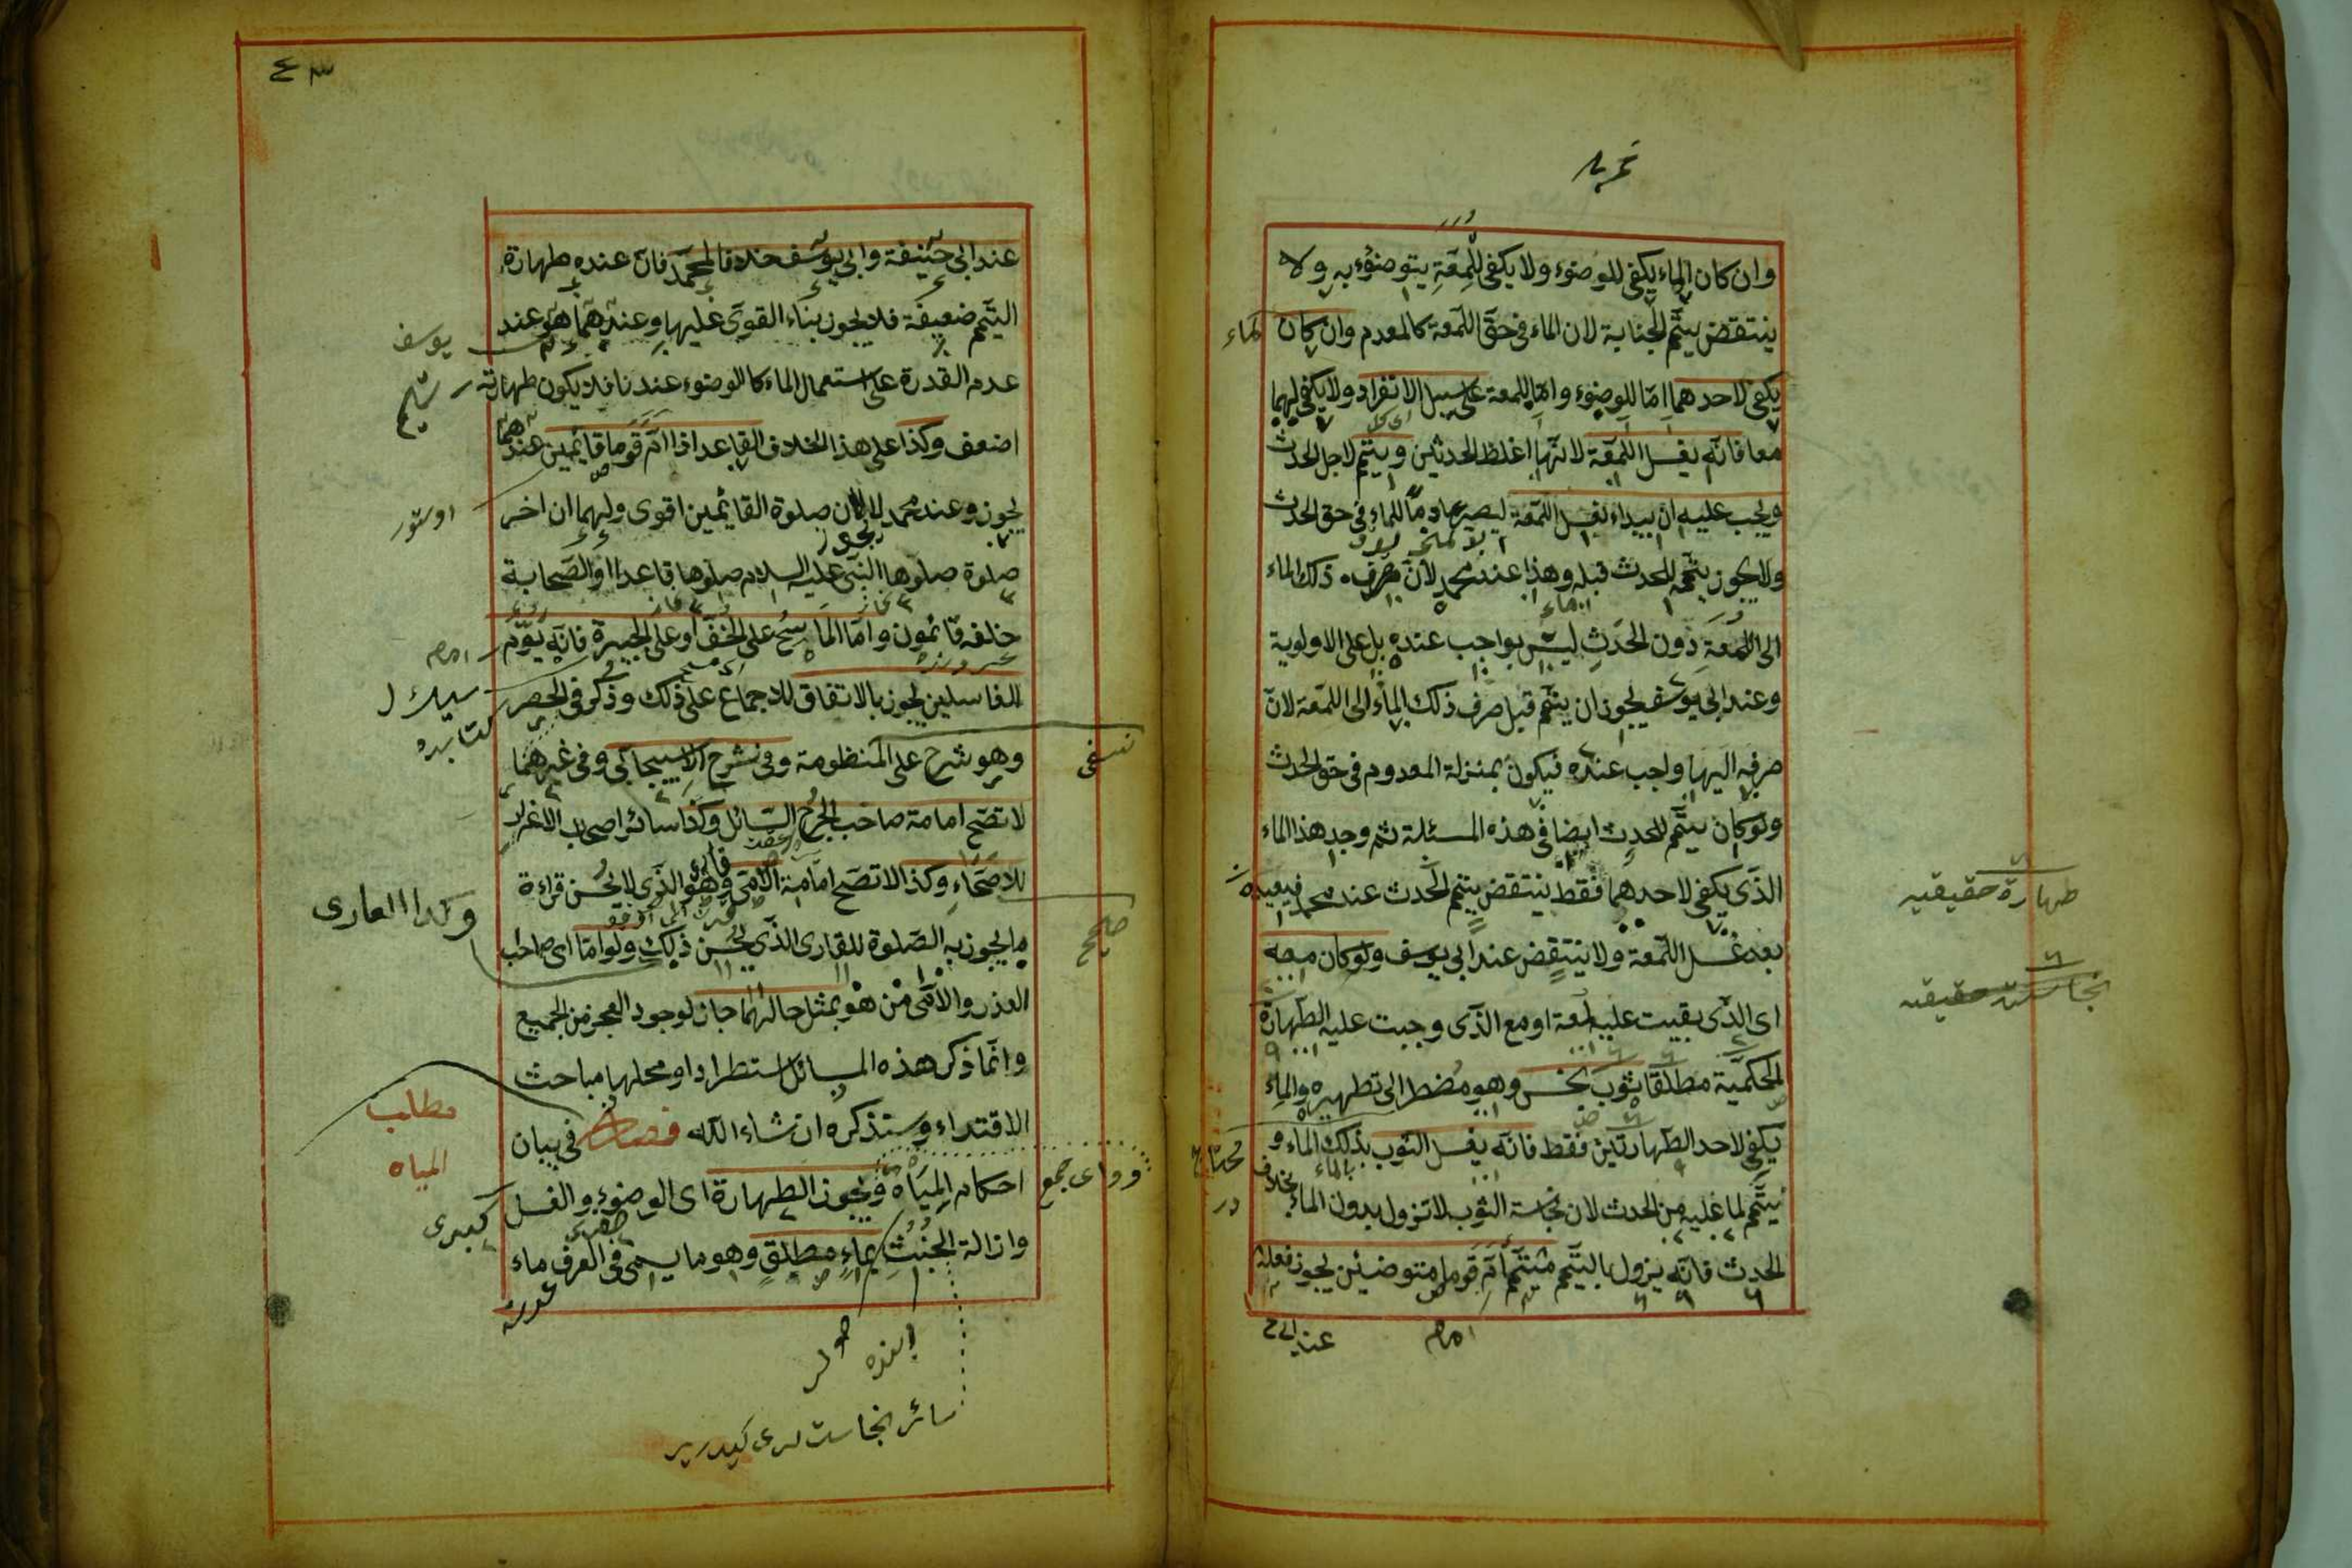 وان كان الماء يكفى للوضوء ولا يكفى للمعة يتوضؤ به ولا
ينتقض تيمم الجنابة لان الماء فى حق اللمعة كالمعدم وان كان
يكفى لاحدهما اما للوضوء واما للمعة على سبيل الانفراد ولا يكفى لهما
معا فانه يغسل اللمعة لانها اغلظ الحدثين ويتيمم لاجل الحدث
ويجب عليه ان يبداء بغسل اللمعة ليصير عادما للماء فى حق الحدث
ولا يجوز تيممه للحدث قبله وهذا عند محمد لان صرف ذلك الماء
الى اللمعة دون الحدث ليس بواجب عنده بل على الاولوية
وعند ابى يوسف يجوز ان يتيمم قبل صرف ذلك الماء الى اللمعة لان
صرفه اليها واجب عنده فيكون بمنزلة المعدوم فى حق الحدث
ولو كان تيمم للحدث ايضا فى هذه المسئلة ثم وجد هذا الماء
الذى يكفى لاحدهما فقط ينتقض تيمم الحدث عند محمد فيعيده
بعد غسل اللمعة ولا ينتقض عند ابى يوسف ولو كان معه
اى الذى بقيت عليه لمعة او مع الذى وجبت عليه الطهارة
الحكمية مطلقا ثوب نجس وهو مضطر الى تطهيره والماء
يكفى لاحد الطهارتين فقط فانه يغسل الثوب بذلك الماء و
يتيمم لما عليه من الحدث لان نجاسة الثوب لا تزول بدون الماء بخلاف
الحدث فانه يزول بالتيمم متيمم ام قوما متوضئين يجوز فعله
طهارة حقيقيه
نجاست حقيقيه
محتاج
در
بالماء
امام
عند ابى ح
٤٣
عند ابى حنيفة وابى يوسف خلافا لمحمد فان عنده طهارة
التيمم ضعيفة فلا يجوز بناء القوى عليها وعندهما هو عند
عدم القدرة على استعمال الماء كالوضوء عندنا فلا يكون طهارته
اضعف وكذا على هذا الخلاف القاعد اذا ام قوما قائمين عندهما
يجوز وعند محمد لا لان صلوة القائمين اقوى ولهما ان اخر
صلوة صلوها النبى عليه السلام صلوها قاعدا والصحابة
خلفه قائمون واما الماسح على الخف او على الجبيرة فانه يؤم
الغاسلين يجوز بالاتفاق للاجماع على ذلك وذكر فى الحصر
وهو شرح على المنظومة وفى شرح الاسبيجابى وفى غيرهما
لا تصح امامة صاحب الجرح السائل وكذا سائر اصحاب الاعذار
للاصحاء وكذا لا تصح امامة الامى وهو الذى لا يحسن قراءة
ما يجوز به الصلوة للقارى الذى يحسن ذلك ولو اما اى صاحب
العذر والامى من هو بمثل حالهما جاز لوجود العجز من الجميع
وانما ذكر هذه المسائل استطرادا ومحلها مباحث
الاقتداء وستذكره ان شاء الله فصل فى بيان
احكام المياه ويجوز الطهارة اى الوضوء والغسل
وازالة الخبث بماء مطلق وهو ما يسمى فى العرف ماء
يوسف
تيمم
امام
كتابده
نسفى
صحيح
وكذا العارى
مطلب
المياه
سائر نجاست لرى كيدرير